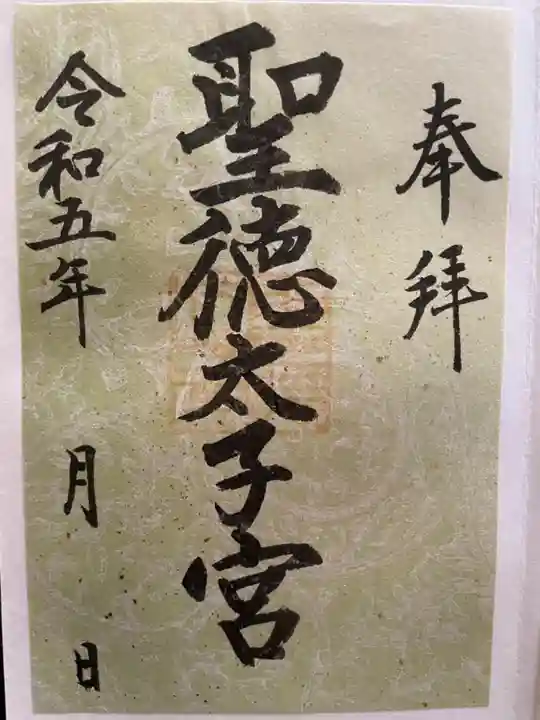 奉拝
聖徳太子宮
令和五年 月 日